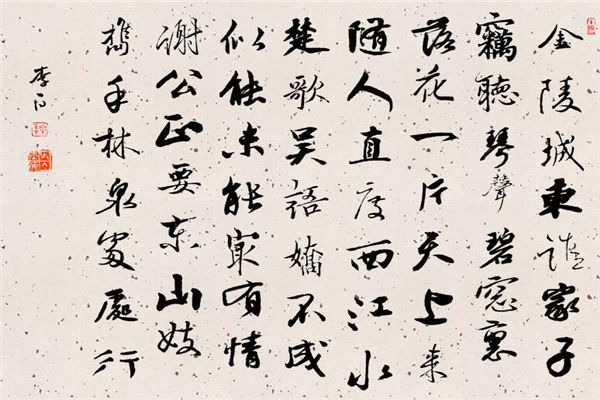 金陵城東誰家子
竊聽琴聲碧窓裏
落花一片天上来
随人直度西江水
楚歌吴語嬌不成
似能未能冣有情
謝公正要东山妓
攜手林泉處處行
李白